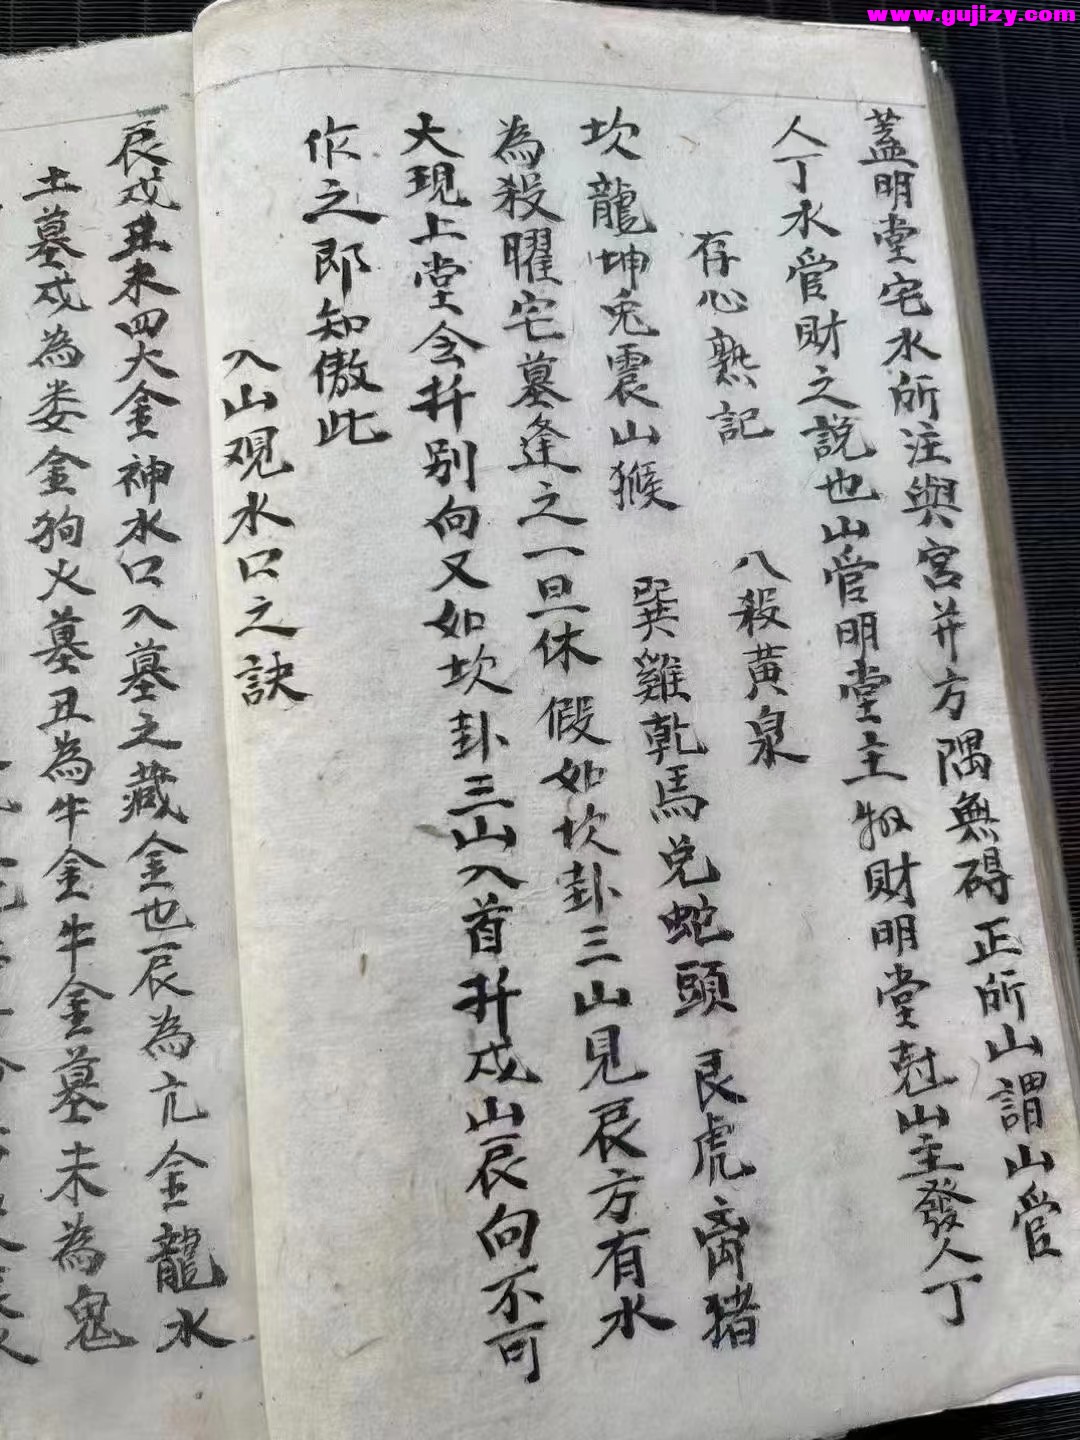 www.gujizy.com
蓋明堂宅水所注與宮并方隅無碍正所山謂山管
人丁水管財之説也山管明堂主物財明堂尅山主發人丁
存心熟記
八殺黃泉
坎龍坤兎震山猴 巽雞乾馬兌蛇頭 艮虎离猪
為殺曜宅墓逢之一旦休 假如坎卦三山見辰方有水
大現上堂会扦别向又如坎卦三山入首扦戍山辰向不可
作之郎知傲此
入山观水口之訣
辰戍丑未四大金神水口入墓之藏金也辰為亢金龍水
土墓戍為娄金狗火墓丑為牛金牛金墓未為鬼